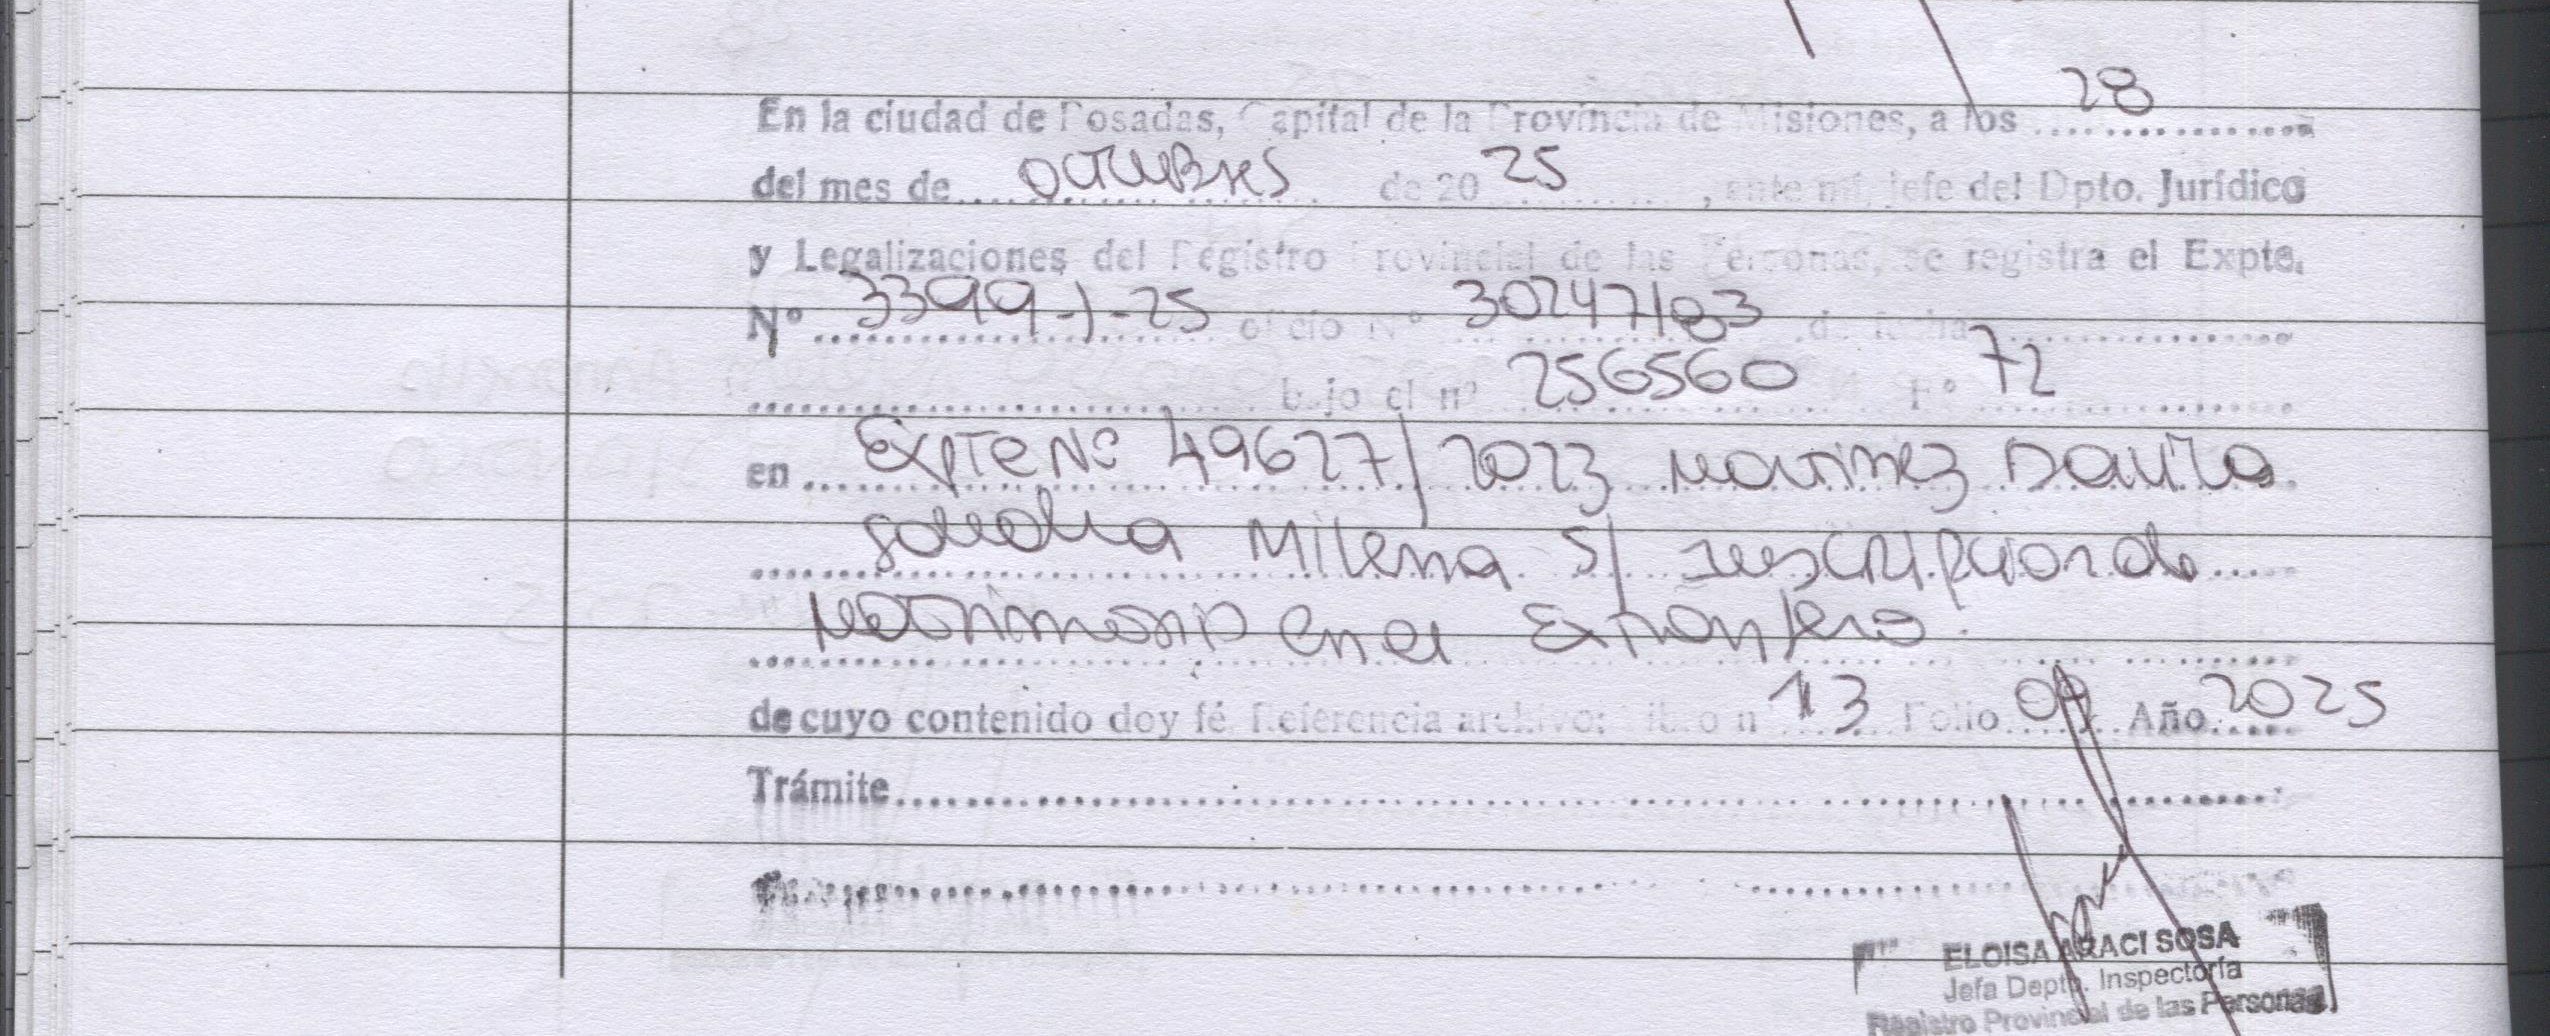 En la ciudad de Posadas, Capital de la Provincia de Misiones, a los 28
del mes de octubres de 20 25, ante mi, jefe del Dpto. Jurídico
y Legalizaciones del Registro Provincial de las Personas, se registra el Expte.
Nº 3399-J-25 oficio Nº 30247183 de fecha
bajo el nº 256560 Fº 72
en Expte Nº 49627/2023 Martinez Davila
Milena s/ Inscripcion de
Matrimonio en el Extranjero.
de cuyo contenido doy fé. Referencia archivo: Libro n 13 Folio 09 Año 2025
Trámite
ELOISA ARACI SOSA
Jefa Depto. Inspectoría
Registro Provincial de las Personas